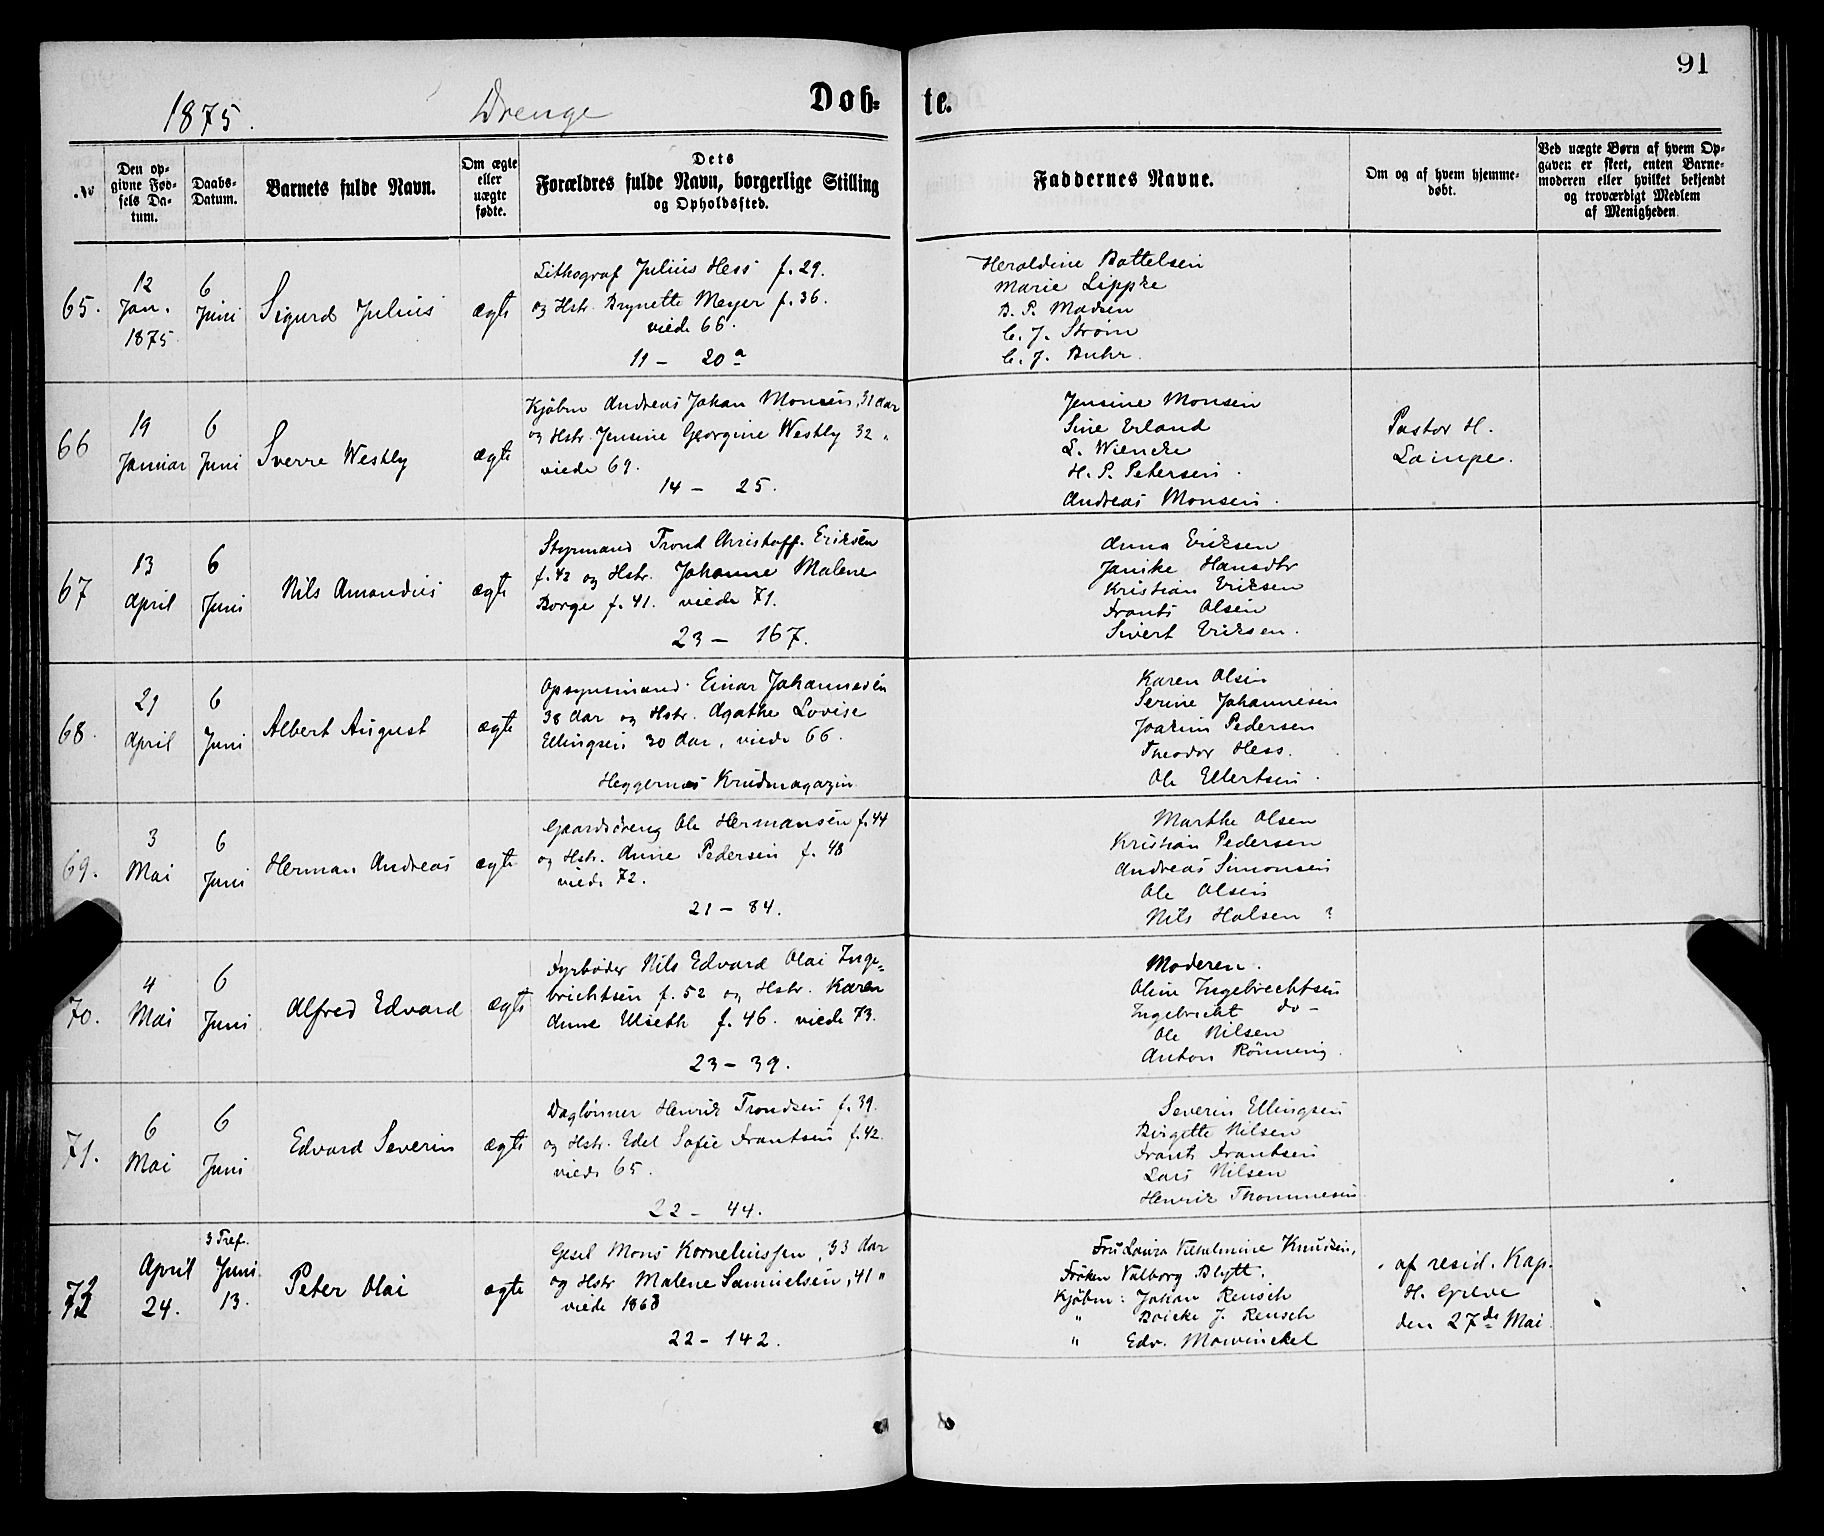 91
1875.
Drenge
Døb-
te.
№
Den op-
givne Fød-
sels Da-
tum.
Daabs-
Datum.
Barnets fulde Navn.
Om ægte
eller
uægte
fødte.
Dets
Forældres fulde Navn, borgerlige Stilling
og Opholdssted.
Faddernes Navne.
Om og af hvem hjemme-
døbt.
Ved uægte Børn af hvem Op-
gaven er skeet, enten Barne-
moderen eller hvilket bekjendt
og troværdigt Medlem
af Menigheden.
65.
12
Jan.
1875
6
Juni
Sigurd Julius
ægte
Lithograf Julius Hess f. 29.
og Hstr. Brynette Meyer f. 36.
viede 66.
11 - 20a
Heraldine Battelsen
Marie Lippke
B. P. Madsen
C. J. Strøm
C. J. Buhr.
66
19
Januar
6
Juni
Sverre Westby
ægte
Kjøbm Andreas Johan Monsen, 31 Aar
og Hstr. Jensine Georgine Westby 32 "
viede 69.
14 - 25.
Jensine Monsen
Sine Erland
L. Wiencke
H. P. Petersen.
Andreas Monsen.
Pastor H.
Lampe.
67
13
April
6
Juni
Nils Amandus
ægte
Styrmand Trond Christoff. Eriksen
f. 42 og Hstr. Johanne Malene
Borge f. 41. viede 71.
23 - 167.
Anna Eriksen
Janike Hansdtr
Kristian Eriksen
Frants Olsen
Sivert Eriksen.
68.
29
April
6
Juni
Albert August
ægte
Opsynsmand Einar Johannesen
38 Aar og Hstr. Agathe Lovise
Ellingsen 30 Aar, viede 66.
Heggernes Krudmagazin
Karen Olsen
Serine Johannesen
Joakim Pedersen
Theodor Hess.
Ole Ellertsen.
69.
3
Mai
6
Juni
Herman Andreas
ægte
Gaardsdreng Ole Hermansen f. 44
og Hstr. Anne Pedersen f. 48
viede 72.
21 - 84.
Marthe Olsen
Kristian Pedersen
Andreas Simonsen
Ole Olsen
Nils Halsen ?
70.
4
Mai
6
Juni
Alfred Edvard
ægte
Fyrbøder Nils Edvard Olai Inge-
brichtsen f. 52 og Hstr. Karen
Anne Ulseth f. 46. viede 73.
23 - 39.
Moderen.
Oline Ingebrechtsen
Ingebricht do -
Ole Nilsen
Anton Rönning.
71.
6
Mai
6
Juni
Edvard Severin
ægte
Daglønner Henrik Trondsen f. 39.
og Hstr. Edel Sofie Frantsen f. 42.
viede 65.
22 - 44.
Severin Ellingsen
Birgette Nilsen
Frants Frantsen
Lars Nilsen
Henrik Thommesen
72
April
24.
3 Tref.
Juni
13.
Peter Olai
ægte
Gesel Mons Korneliussen, 33 Aar
og Hstr Malene Samuelsen, 41 "
viede 1868
22 - 142.
Fru Laura Vilhelmine Knudsen,
Frøken Valborg Blytt.
Kjøbm: Johan Reusch
" Bricke J. Reusch
" Edv. Mowinckel
af resid. Kap.
H. Gjelde
den 27de Mai